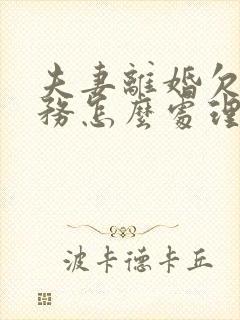 夫妻離婚欠
務怎麽處理
波卡德卡丘